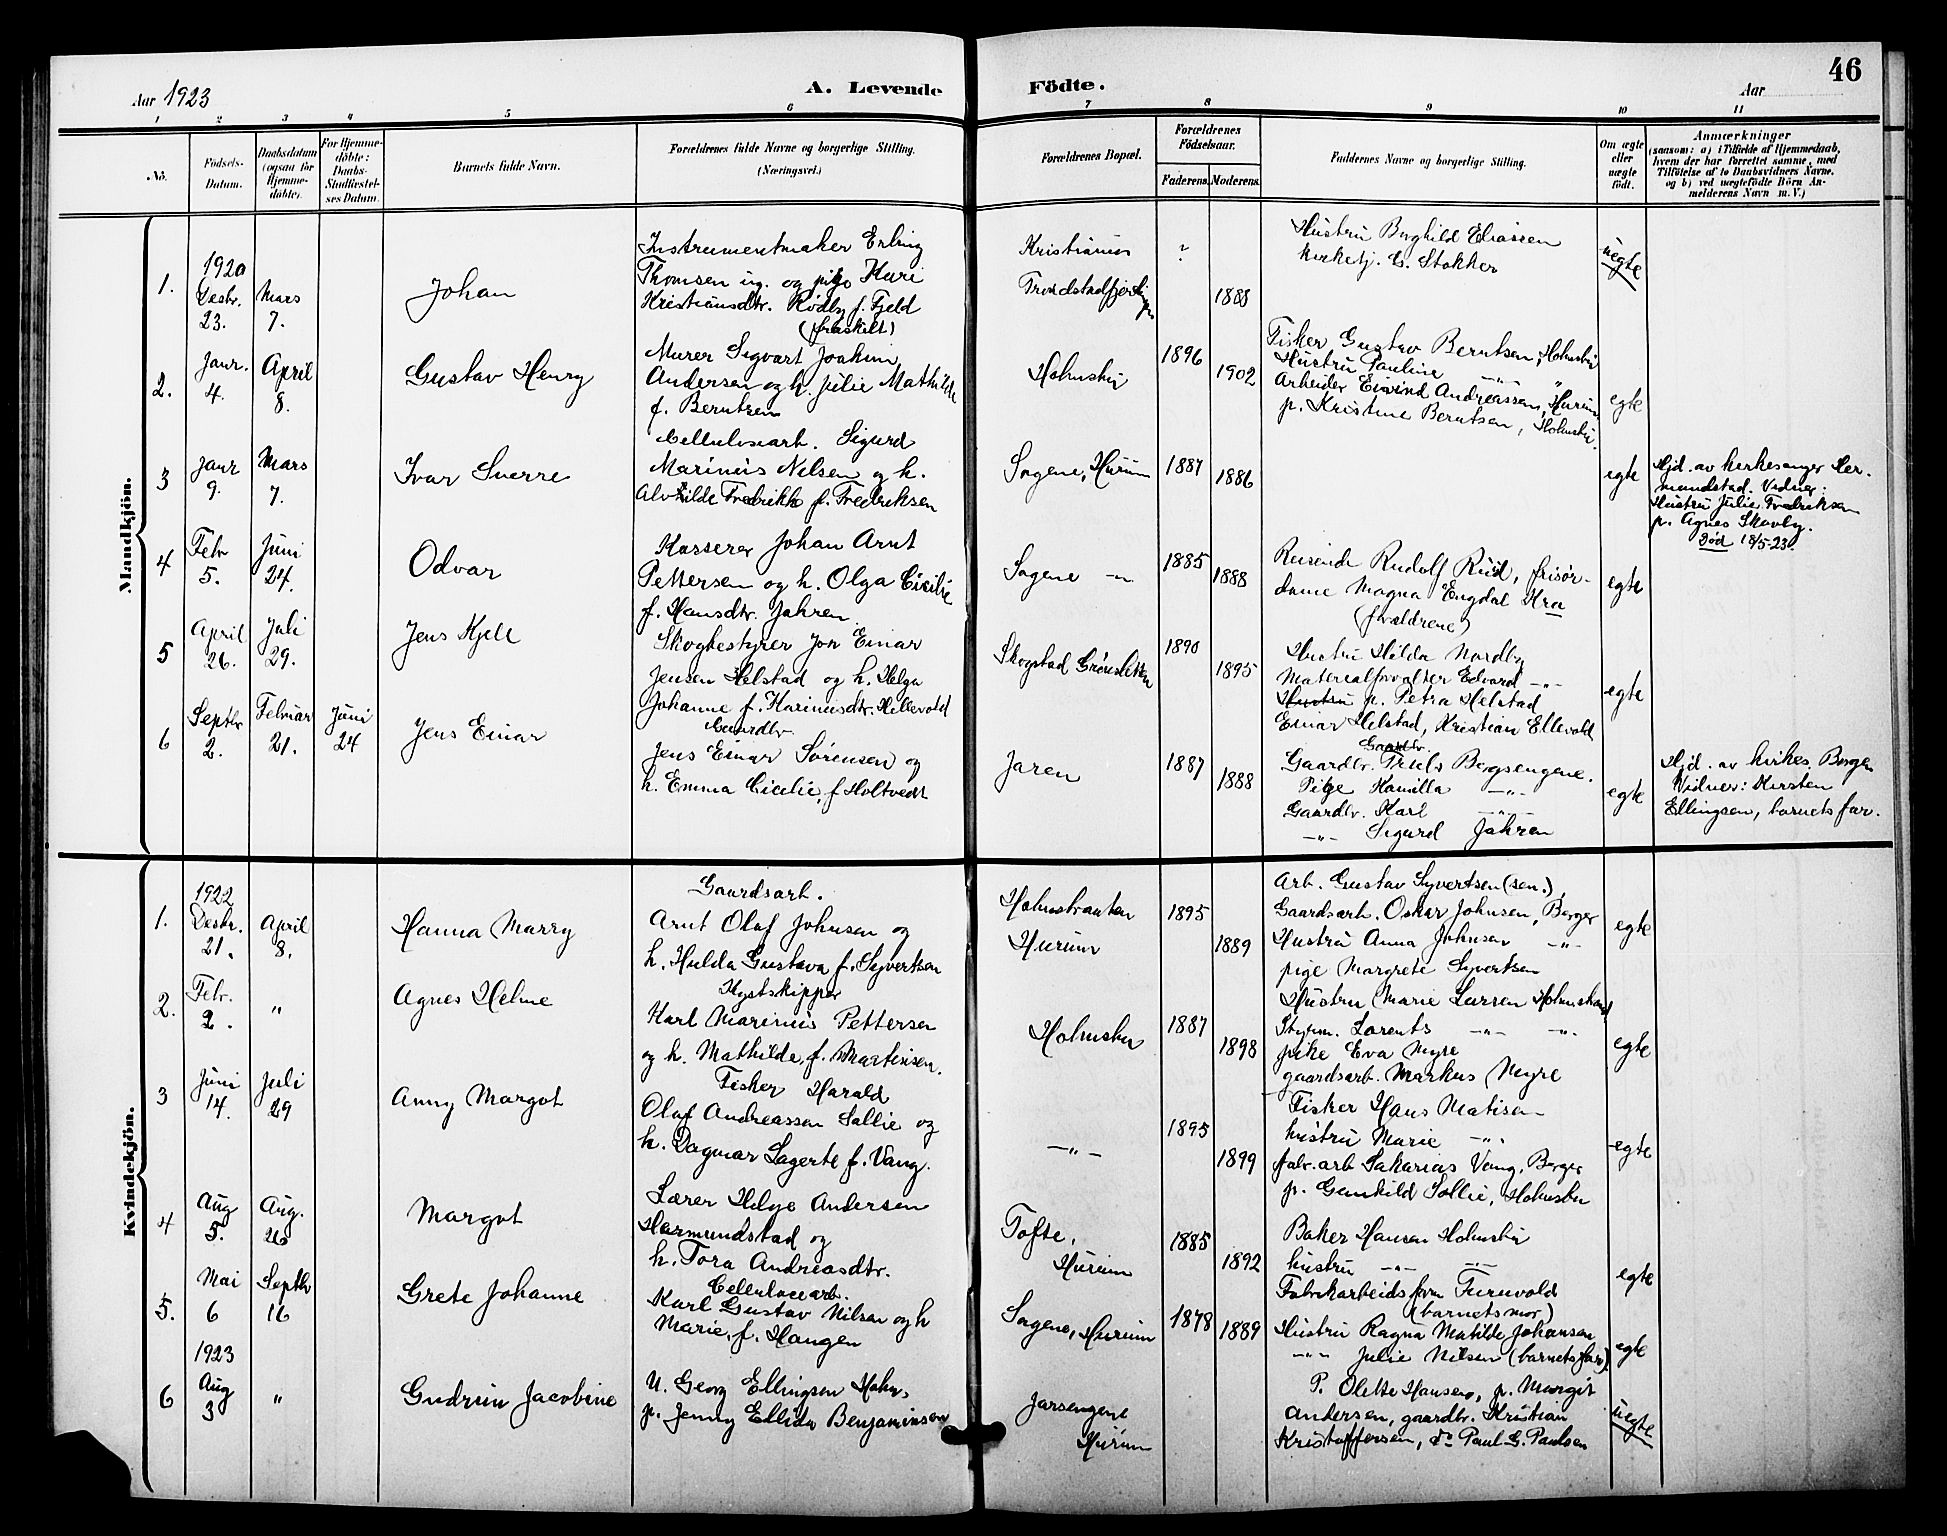 46
Aar 1923
A. Levende Födte.
Aar
1 2 3 4 5 6 7 8 9 10 11
No.
Födsels-Datum.
Daabsdatum (ogsaa for Hjemme-döbte).
For Hjemme-döbte: Daabs-Stadfæstel-ses Datum.
Barnets fulde Navn.
Forældrenes fulde Navne og borgerlige Stilling.
(Næringsvei.)
Forældrenes Bopæl.
Forældrenes Födselsaar.
Faderens. Moderens.
Faddernes Navne og borgerlige Stilling.
Om ægte eller uægte födt.
Anmærkninger
(saasom: a) i Tilfælde af Hjemmedaab, hvem der har forrettet samme, med Tilföielse af to Daabsvidners Navne, og b) ved uægtefödte Börn An-melderens Navn m. V.)
Mandkjön.
1.
1920
Desbr.
23.
Mars
7.
Johan
Instrumentmaker Erling
Thomsen ug. og pige Kari
Kristiansdtr. Rödby f. Fjeld
(fraskilt)
Kristiania
?
1888
Hustru Borghild Eliassen
Kirketj. C. Stokker
uegte
2.
Janr.
4.
April
8.
Gustav Henry
Murer Sigvart Joakim
Andersen og h. Julie Mathilde
f. Berntsen
Holmsbu
1896
1902
Fisker Gustav Berntsen, Holmsbu
Hustru Pauline -"- "
Arbeider Eivind Andreassen, Hurum
p. Kristine Berntsen, Holmsbu.
egte
3
Janr
9.
Mars
7.
Ivar Sverre
Cellulosearb. Sigurd
Marinius Nilsen og h.
Alvhilde Fredrikke f. Fredriksen
Sagene, Hurum
1887
1886
egte
Hjd. av kirkesanger Her-
mundstad. Vidner:
Hustru Julie Fredriksen
p. Agnes Skovby.
Död 18/5-23.
4
Febr
5.
Juni
24.
Odvar
Kasserer Johan Arnt
Pettersen og h. Olga Cicilie
f. Hansdtr. Jahren.
Sagene -"-
1885
1888
Reisende Rudolf Ruud, frisör-
dame Magna Engdal Kra
(foreldrene)
egte
5
April
26.
Juli
29.
Jens Kjell
Skogbestyrer Jon Einar
Jensen Helstad og h. Helga
Johanne f. Karinusdtr. Hellevold
1890
1895
Hustru Hilda Nordby
Materialforvalter Edvard -"-
p. Petra Helstad
Einar Helstad, Kristian Ellevold
egte
6
Septbr
2.
Februar
21.
Juni
24
Jens Einar
Gaardbr.
Jens Einar Sörensen og
h. Emma Cicilie, f. Holtvedt
Jaren
1887
1888
Gaardbr. Truls Bergsengene.
Pige Kamilla -"-
Gaardbr. Karl -"-
-"- Sigurd Jahren
egte
Hjd. av kirkes. Borgen
Vidner: Kirsten
Ellingsen, barnets far.
Kvindekjön.
1.
1922
Desbr.
21.
April
8.
Hanna Marry
Gaardsarb.
Arnt Olaf Johnsen og
h. Hulda Gustava f. Syvertsen
Holmstranten
Hurum
1895
1889
Arb. Gustav Syvertsen (sen.),
Gaardsarb. Oskar Johnsen, Berger
Hustru Anna Johnsen -"-
pige Margrete Syvertsen
egte
2.
Febr.
2.
"
Agnes Helene
Kystskipper
Karl Marinius Pettersen
og h. Mathilde, f. Martinsen.
Holmsbu
1887
1898
Hustru Marie Larsen Holmsbu
Styrm. Lorents -"- -"-
pike Eva Myre
gaardsarb. Markus Myre
egte
3
Juni
14.
Juli
29
Anny Margot
Fisker Harald
Olaf Andreassen Sollie og
h. Dagmar Lagerte f. Vang.
-"-
1895
1899
Fisker Hans Matisen
hustru Marie -"-
fabr. arb Sakarias Vang, Berger
p. Gunhild Sollie, Holmsbu
egte
4
Aug
5.
Aug.
26
Margot
Lærer Helge Andersen
Hermundstad og
h. Tora Andreasdtr.
Tofte,
Hurum
1885
1892
Baker Hansen Holmsbu
hustru -"- -"-
Fabrikarbeidsform Furuvold
(barnets mor)
egte
5.
Mai
6
Septbr
16
Grete Johanne
Cellulosearb.
Karl Gustav Nilsen og h
Marie, f. Haugen
Sagene, Hurum
1878
1889
Hustru Ragna Matilde Johansen
-"- Julie Nilsen (barnets far)
egte
6
1923
Aug
3
"
Gudrun Jacobine
U. Georg Ellingsen Holm,
p. Jenny Ellida Benjaminsen
Jarsengene
Hurum
P. Olette Hansen, p. Margit
Andersen, gaardbr. Kristian
Kristoffersen, do Paul G. Paulsen
uegte